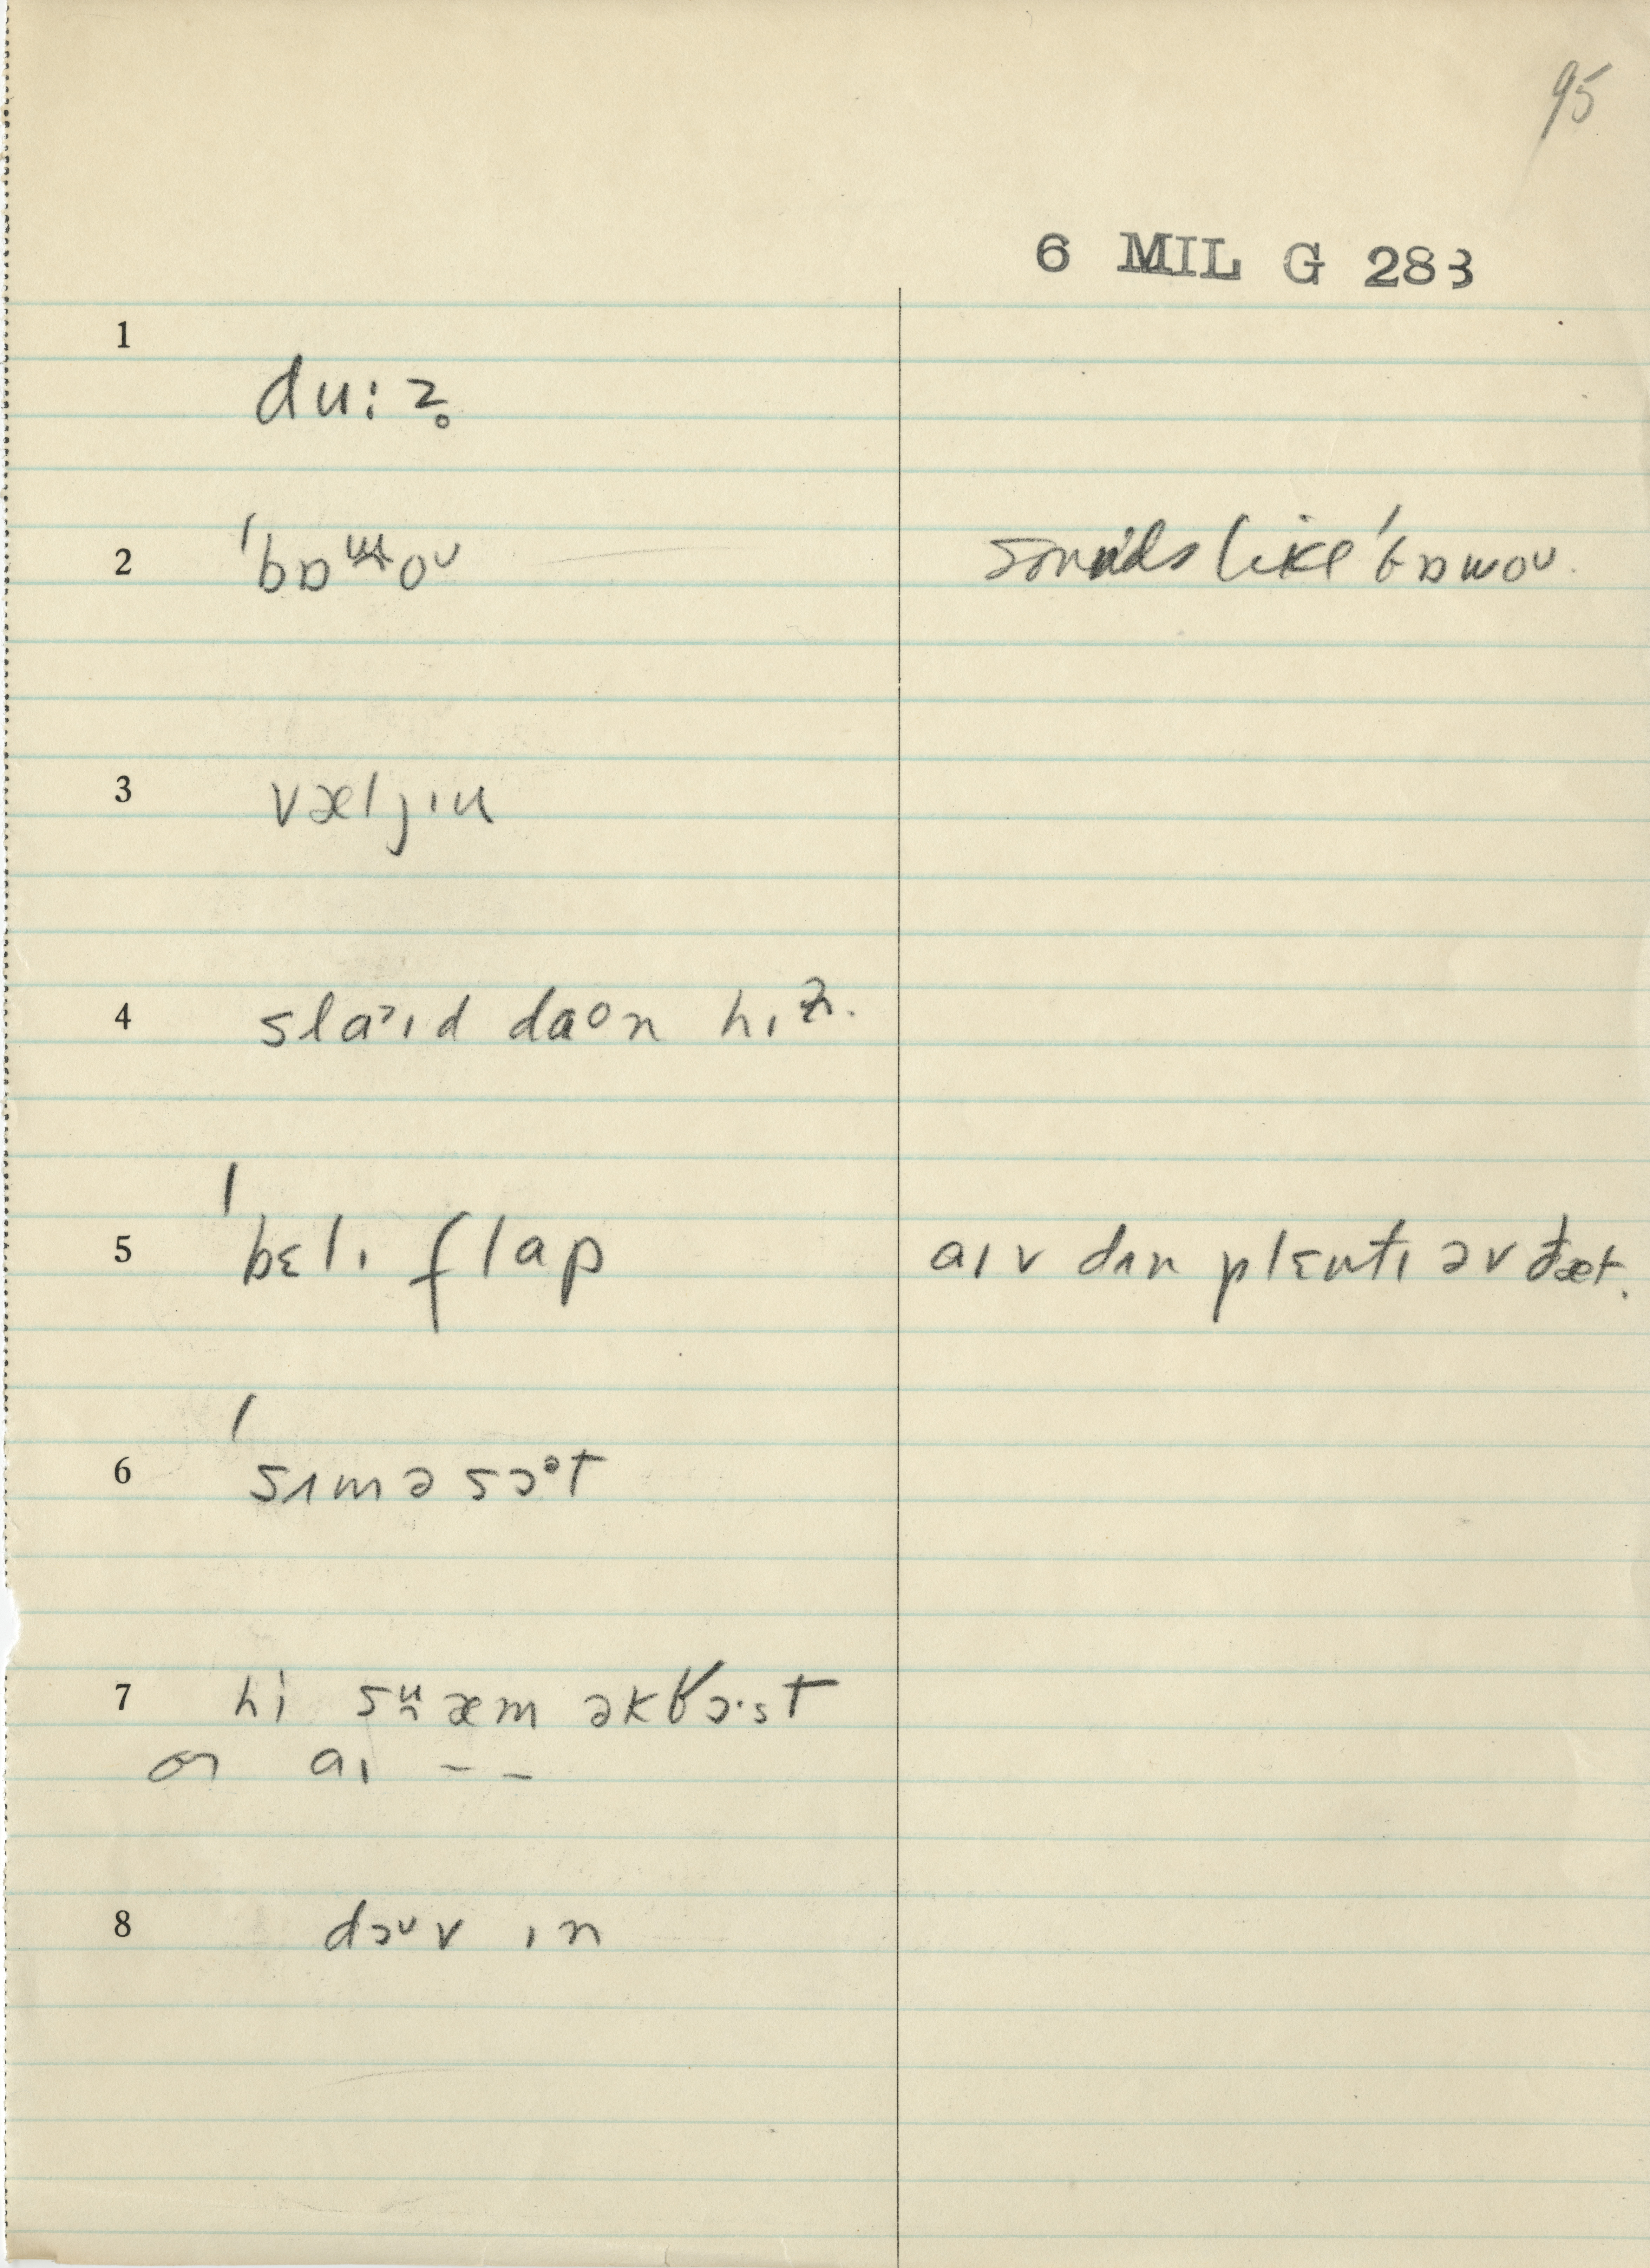 95
6 MIL G 283
1
du:z̥
2 ˈbɒɯoᴜ sounds like ˈbɒɯoᴜ.
3 væljɪu
4 slaᶦɪd daᵒn hɪz.
5 ˈbɛlɪ flap aɪv dɪn plɛntɪ əv đæt.
6 ˈsɪməsɔᵊt
7 hi sʷæm əkʁɔ·st
or aɪ – –
8 dɔᶸv ɪn